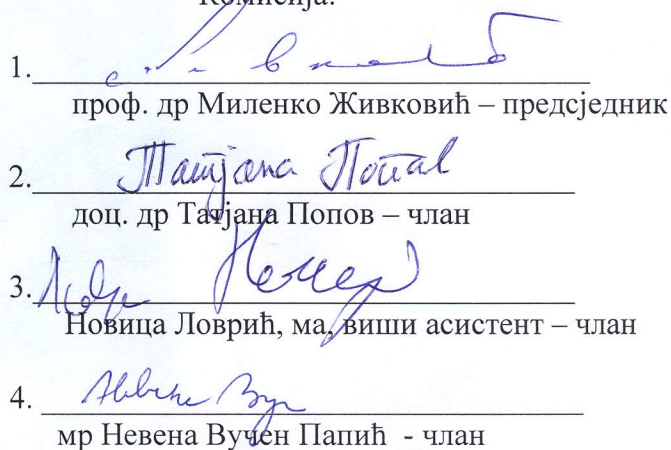 Комисија:
1.
проф. др Миленко Живковић – предсједник
2. Татјана Попов
доц. др Татјана Попов – члан
3.
Новица Ловрић, ма, виши асистент – члан
4.
мр Невена Вучен Папић - члан